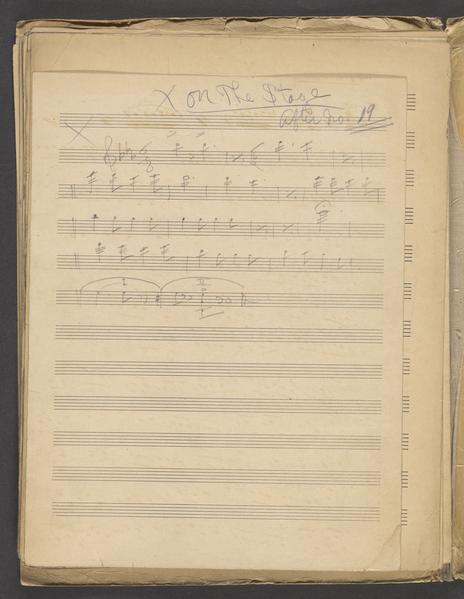 X on The Stage
After No. 19
X
I II